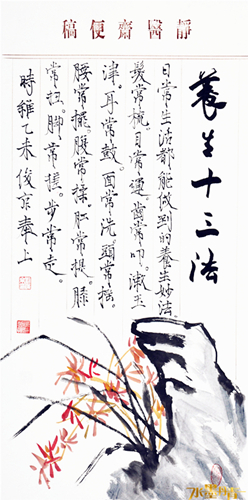 靜醫齋便稿
養生十三法
日常生活都能做到的養生妙法
髮常梳。目常運。齒常叩。漱玉
津。耳常鼓。面常洗。頭常摇。
腰常擺。腹常揉。肛常提。膝
常扭。脚常搓。步常走。
時維乙未俊京奉上